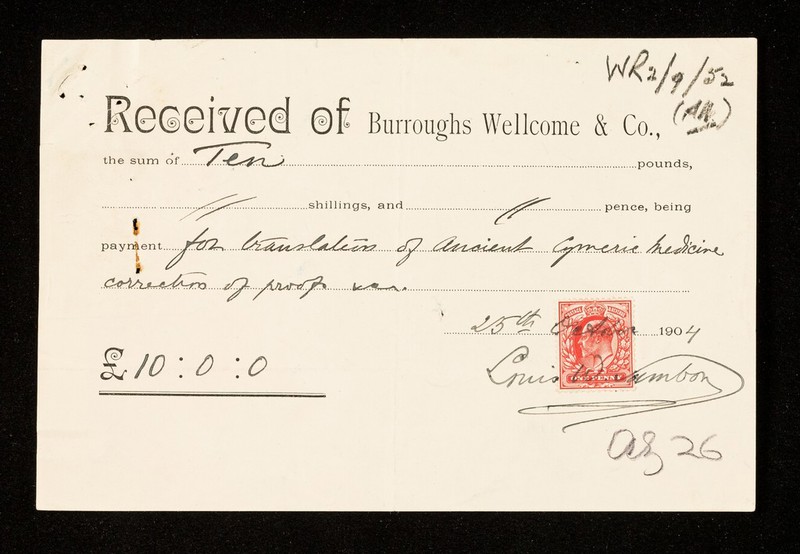 WR2/9/52
(AN.)
Received of Burroughs Wellcome & Co.,
the sum of Ten pounds,
// shillings, and // pence, being
payment for translation of Ancient Cymric Medicine
correction of proofs
25th October 1904
£10:0:0
Louis Sambon
ONE PENNY
26